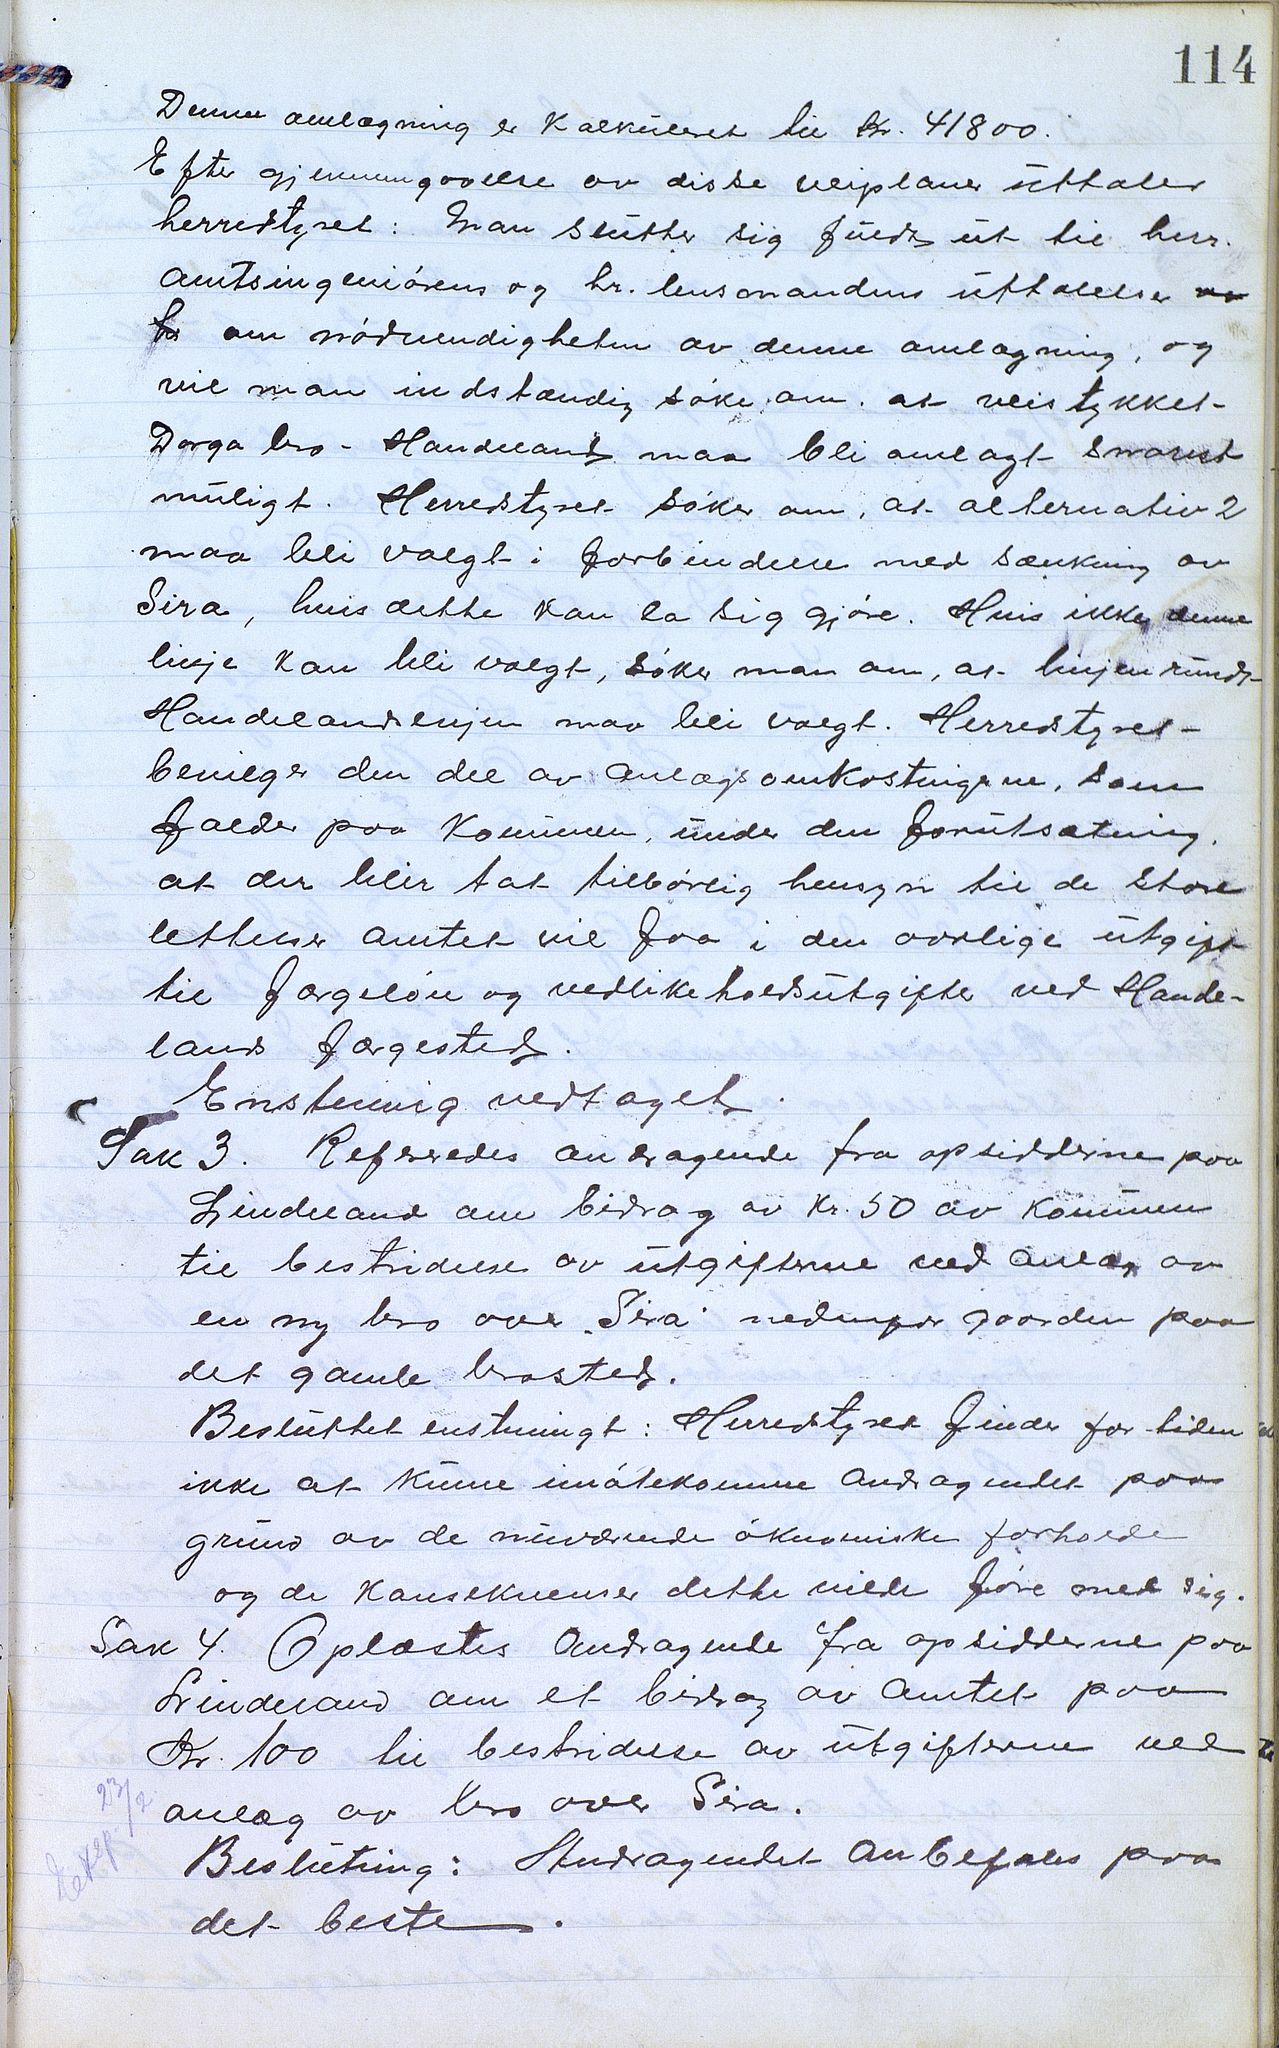 114
Denne omlægning er kalkuleret til kr. 41800.
Efter gjennemgaaelse av disse veiplaner uttaler
herredstyret: Man slutter sig fuldt ut til herr.
amtsingeniørens og hr. lensmandens uttalelser
om nødvendigheten av denne omlægning, og
vil man indstændig søke om at veistykket
Dorga bro - Handeland maa bli omlagt snarest
muligt. Herredstyret søker om, at alternativ 2
maa bli valgt i forbindelse med sænkning av
Sira, hvis dette kan la sig gjøre. Hvis ikke denne
linje kan bli valgt, søker man om, at linjen rundt
Handelandslinjen maa bli valgt. Herredstyret
bevilger den del av anlægsomkostningerne, som
falder paa kommunen, under den forutsætning,
at der blir tat tilbørlig hensyn til de store
lettelser amtet vil faa i den aarlige utgift
til færgeløn og vedlikeholdsutgifter ved Hande-
lands færgested.
Enstemmig vedtaget.
Sak 3. Refereredes andragende fra opsidderne paa
Lindeland om bidrag av kr. 50 av kommunen
til bestridelse av utgifterne ved anlæg av
en ny bro over "Sira" nedenfor gaarden paa
det gamle brosted.
Besluttet enstemmigt: Herredstyret finder for tiden
ikke at kunne imøtekomme andragendet paa
grund av de nuværende økonomiske forholde
og de konsekvenser dette vilde føre med sig.
Sak 4. Oplæstes andragende fra opsidderne paa
Lindeland om et bidrag av amtet paa
Kr. 100 til bestridelse av utgifterne ved
anlæg av bro over Sira.
23/2
Beslutning: Andragendet anbefales paa
det beste.